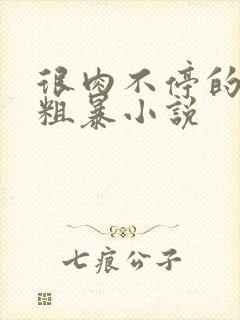 很肉不停的
粗暴小说
七痕公子